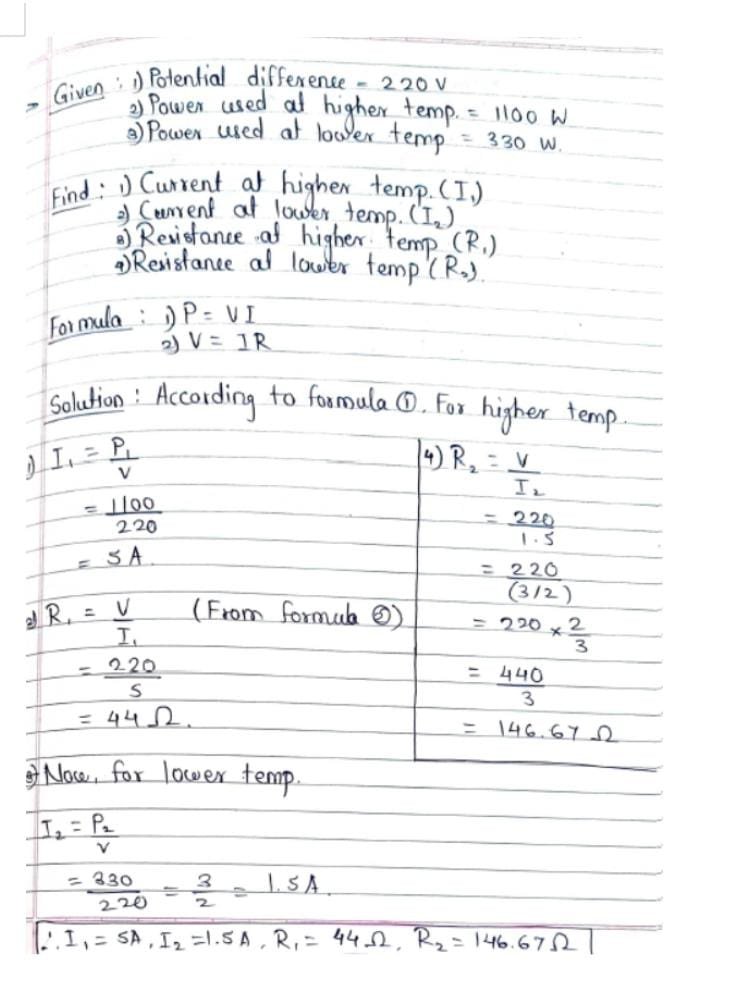 Given : 1) Potential difference = 220 V
2) Power used at higher temp. = 1100 W
3) Power used at lower temp = 330 W.
Find : 1) Current at higher temp. (I₁)
2) Current at lower temp. (I₂)
3) Resistance at higher temp (R₁)
4) Resistance at lower temp (R₂).
Formula : 1) P = VI
2) V = IR
Solution : According to formula ①. For higher temp.
1) I₁ = P₁/V
= 1100/220
= 5 A.
2) R₁ = V/I₁ (From formula ②)
= 220/5
= 44 Ω.
3) Now, for lower temp.
I₂ = P₂/V
= 330/220 = 3/2 = 1.5 A.
4) R₂ = V/I₂
= 220/1.5
= 220/(3/2)
= 220 × 2/3
= 440/3
= 146.67 Ω
∴ I₁ = 5A, I₂ = 1.5 A, R₁ = 44 Ω, R₂ = 146.67 Ω